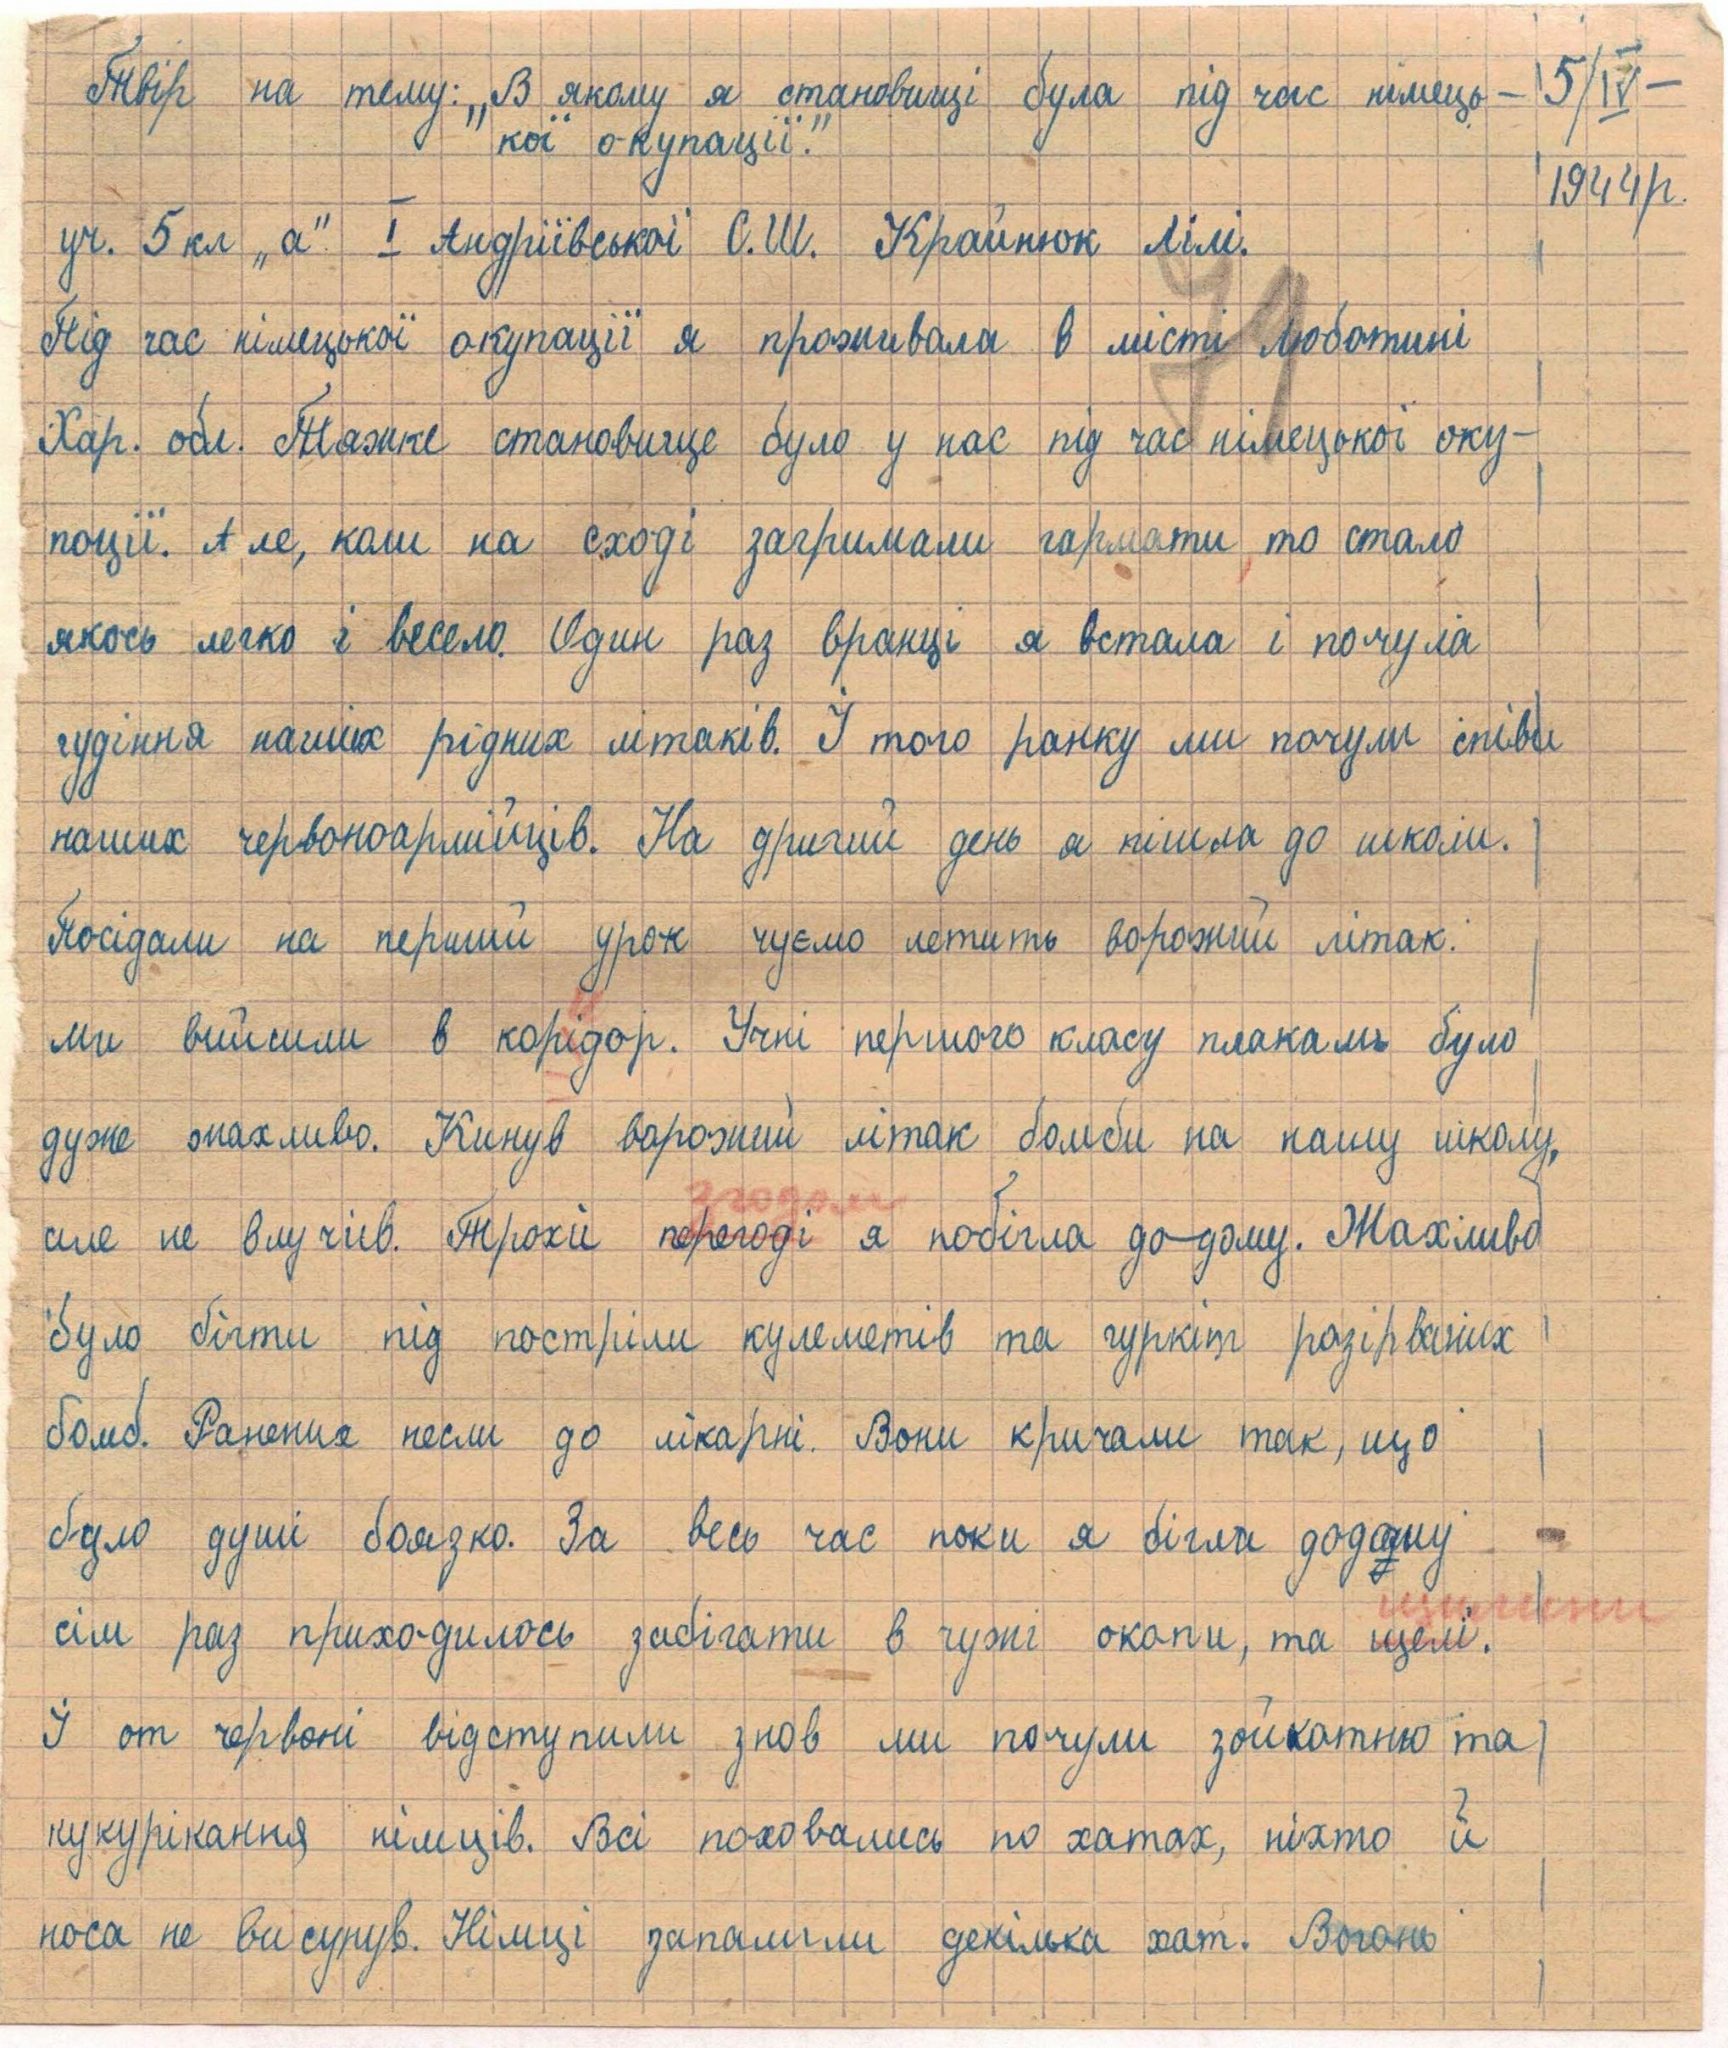 Твір на тему: „В якому я становищі була під час німець-
"кої окупації."
5/IV-
1944р.
уч. 5 кл „а" I Андріївської С.Ш. Крайнюк Лілі.
79
Під час німецької окупації я проживала в місті Люботині
Хар. обл. Тяжке становище було у нас під час німецької оку-
поції. Але, коли на сході загримали гармати, то стало
якось легко і весело. Один раз вранці я встала і почула
гудіння наших рідних літаків. Й того ранку ми почули співи
наших червоноармійців. На другий день я пішла до школи.
Посідали на перший урок чуємо летить ворожий літак.
ми вийсили в корідор. Учні першого класу плакали було
дуже жахливо. Кинув ворожий літак бомби на нашу школу,
але не влучив. Трохи перегоді я побігла до-дому. Жахливо
згодом
було бігти під постріли кулеметів та гуркіт розірваних
бомб. Ранених несли до лікарні. Вони кричали так, що
було душі боязко. За весь час поки я бігла додому
сім раз приходилось забігати в чужі окопи, та щелі.
щилини
Й от червоні відступили знов ми почули зойкотню та
кукурікання німців. Всі поховались по хатах, ніхто й
носа не висунув. Німці запалили декілька хат. Вогонь